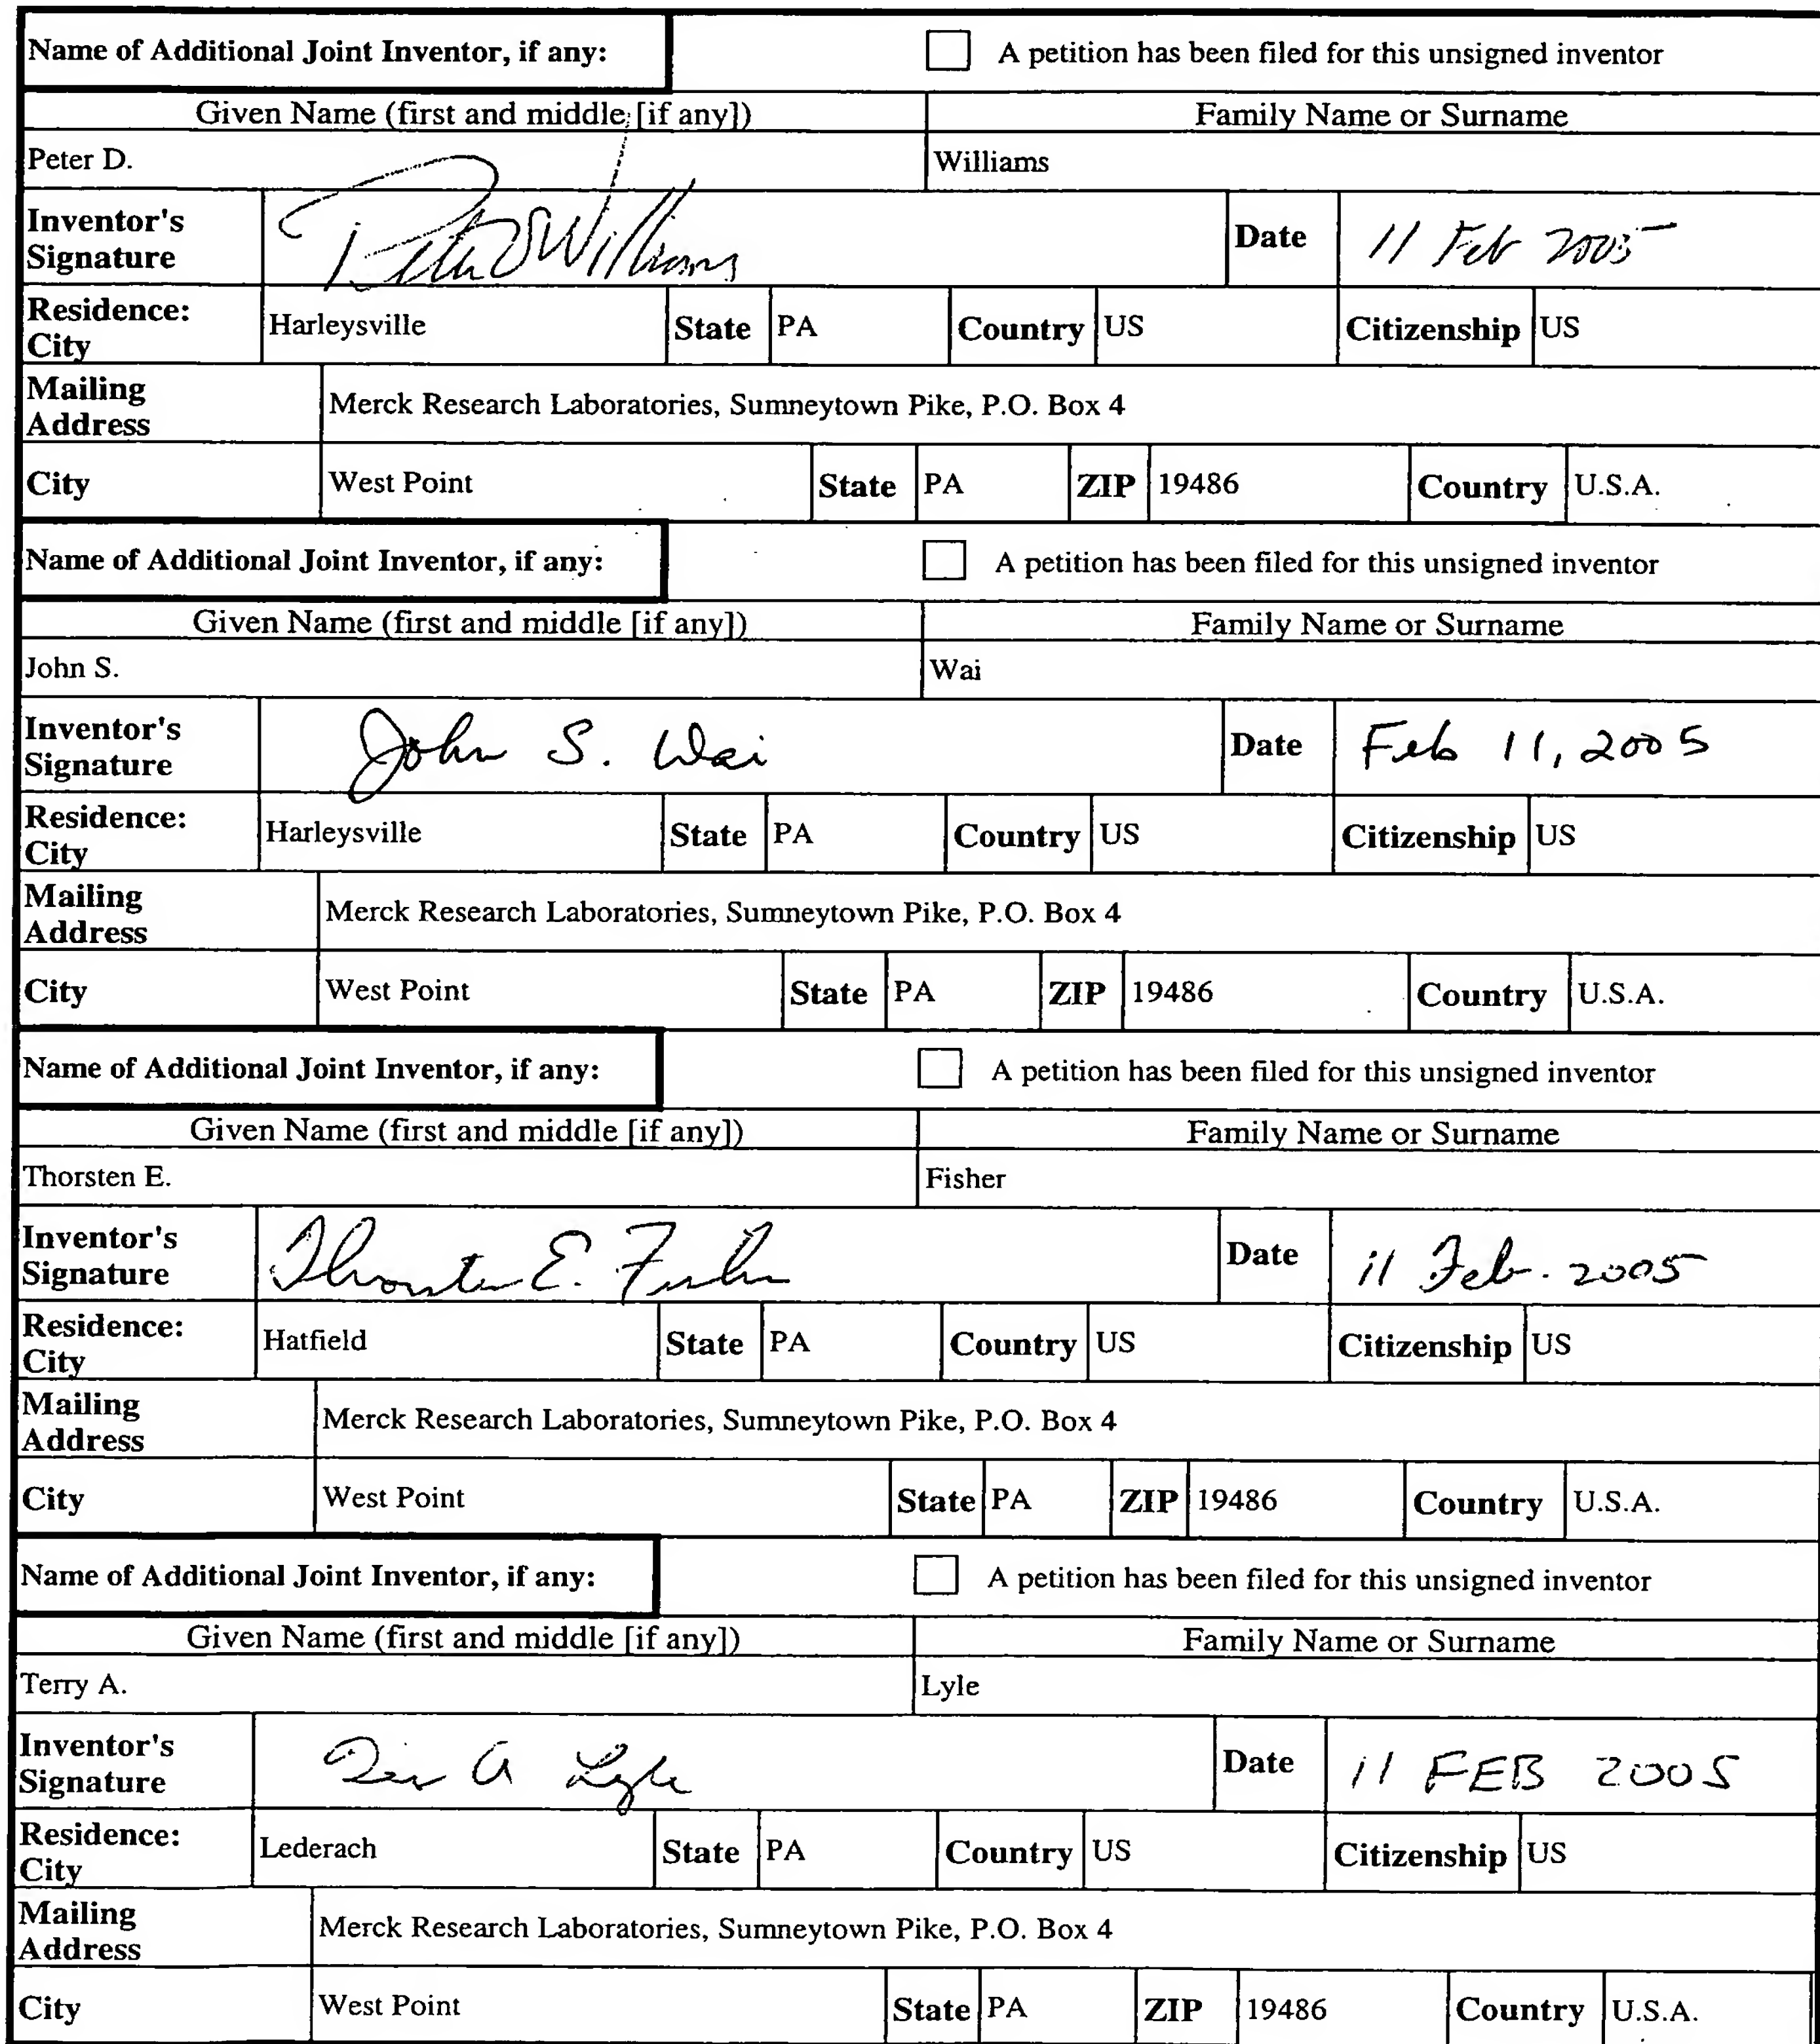 Name of Additional Joint Inventor, if any: A petition has been filed for this unsigned inventor
Given Name (first and middle [if any]) Family Name or Surname
Peter D. Williams
Inventor's Signature Peter D Williams Date 11 Feb 2005
Residence: City Harleysville State PA Country US Citizenship US
Mailing Address Merck Research Laboratories, Sumneytown Pike, P.O. Box 4
City West Point State PA ZIP 19486 Country U.S.A.
Name of Additional Joint Inventor, if any: A petition has been filed for this unsigned inventor
Given Name (first and middle [if any]) Family Name or Surname
John S. Wai
Inventor's Signature John S. Wai Date Feb 11, 2005
Residence: City Harleysville State PA Country US Citizenship US
Mailing Address Merck Research Laboratories, Sumneytown Pike, P.O. Box 4
City West Point State PA ZIP 19486 Country U.S.A.
Name of Additional Joint Inventor, if any: A petition has been filed for this unsigned inventor
Given Name (first and middle [if any]) Family Name or Surname
Thorsten E. Fisher
Inventor's Signature Thorsten E. Fisher Date 11 Feb. 2005
Residence: City Hatfield State PA Country US Citizenship US
Mailing Address Merck Research Laboratories, Sumneytown Pike, P.O. Box 4
City West Point State PA ZIP 19486 Country U.S.A.
Name of Additional Joint Inventor, if any: A petition has been filed for this unsigned inventor
Given Name (first and middle [if any]) Family Name or Surname
Terry A. Lyle
Inventor's Signature Terry A Lyle Date 11 FEB 2005
Residence: City Lederach State PA Country US Citizenship US
Mailing Address Merck Research Laboratories, Sumneytown Pike, P.O. Box 4
City West Point State PA ZIP 19486 Country U.S.A.